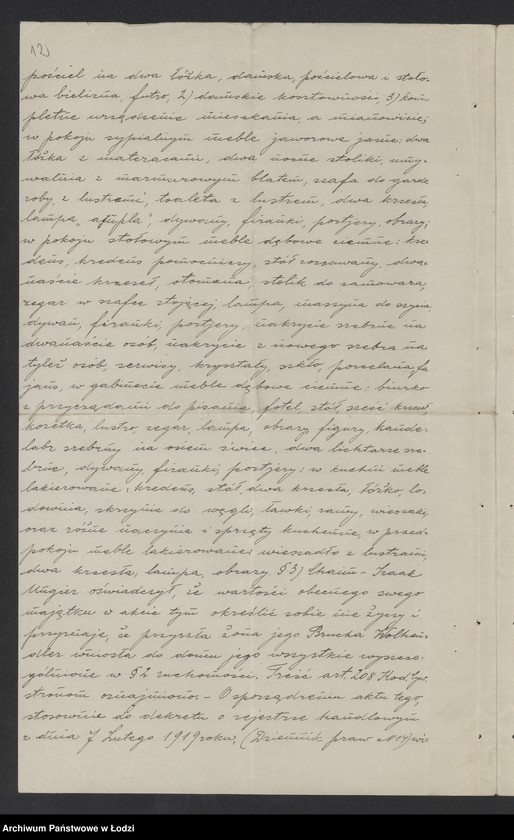 12)
pościel na dwa łóżka, damska, pościelowa i stoło-
wa bielizna, futro, 2) damskie kosztowności, 3) kom-
pletne urządzenie mieszkania, a mianowicie;
w pokoju sypialnym meble jaworowe jasne: dwa
łóżka z materacami, dwa nocne stoliki, umy-
walnia z marmurowym blatem, szafa do garde
roby, z lustrem, toaleta z lustrem, dwa krzesła,
lampa, dywany, firanki, portjery, obrazy;
w pokoju stołowym meble dębowe ciemne: kre-
dens, kredens pomocniczy, stół rozsuwany, dwa-
naście krzeseł, otomana, stolik do samowara,
zegar w szafce stojącej, lampa, maszyna do szycia
dywan, firanki, portjery, nakrycie srebrne na
dwanaście osób, nakrycie z nowego srebra na
tyleż osób, serwisy, kryształy, szkło, porcelana, fa
jans, w gabinecie meble dębowe ciemne: biurko
z przyrządami do pisania, fotel, stół, sześć krzeseł
kozetka, lustro, zegar, lampa, obrazy, figury, kande-
labr srebrny na osiem świec, dwa lichtarze sre-
brne, dywany, firanki, portjery; w kuchni meble
lakierowane: kredens, stół, dwa krzesła, łóżko, lo-
downia, skrzynia do węgli, ławki, ramy, wieszaki
oraz różne naczynia i sprzęty kuchenne, w przed-
pokoju meble lakierowane: wieszadło z lustrem,
dwa krzesła, lampa, obrazy. § 3) Chaim-Icaak
Mugier oświadczył, że wartości obecnego swego
majątku w akcie tym określić sobie nie życzy i
przyznaje, że przyszła żona jego Brucha Wolhen-
dler wniosła do domu jego wszystkie wyszcze-
gólnione w § 2 ruchomości. Treść art. 208 Kod. Cyw.
stronom oznajmiono.- O sporządzeniu aktu tego,
stosownie do dekretu o rejestrze handlowym
z dnia 7 Lutego 1919 roku, (Dziennik praw № 14)
Archiwum Państwowe w Łodzi